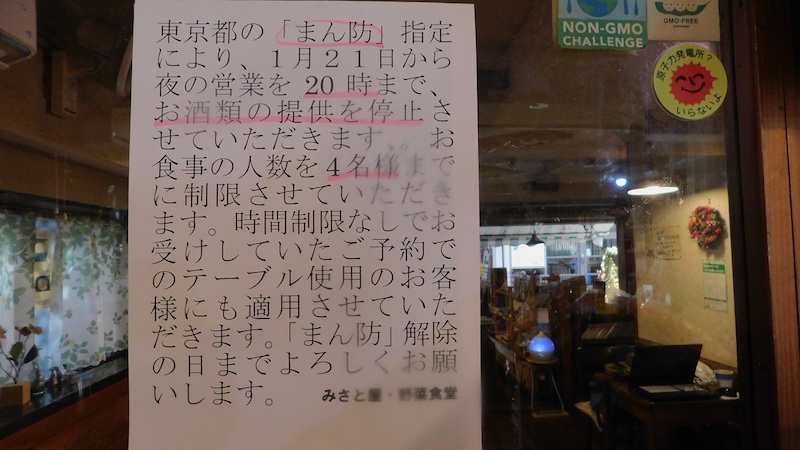 東京都の「まん防」指定
により、1月21日から
夜の営業を 20 時まで、
お酒類の提供を停止さ
せていただきます。お
食事の人数を4名様まで
に制限させていただき
ます。時間制限なしでお
受けしていたご予約で
のテーブル使用のお客
様にも適用させていた
だきます。「まん防」解除
の日までよろしくお願
いします。 みさと屋・野菜食堂
NON-GMO
CHALLENGE
GMO-FREE
原子力発電所?
いらないよ